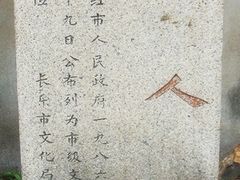 人
市人民政府一九八
九日公布列为市级文
长乐市文化局